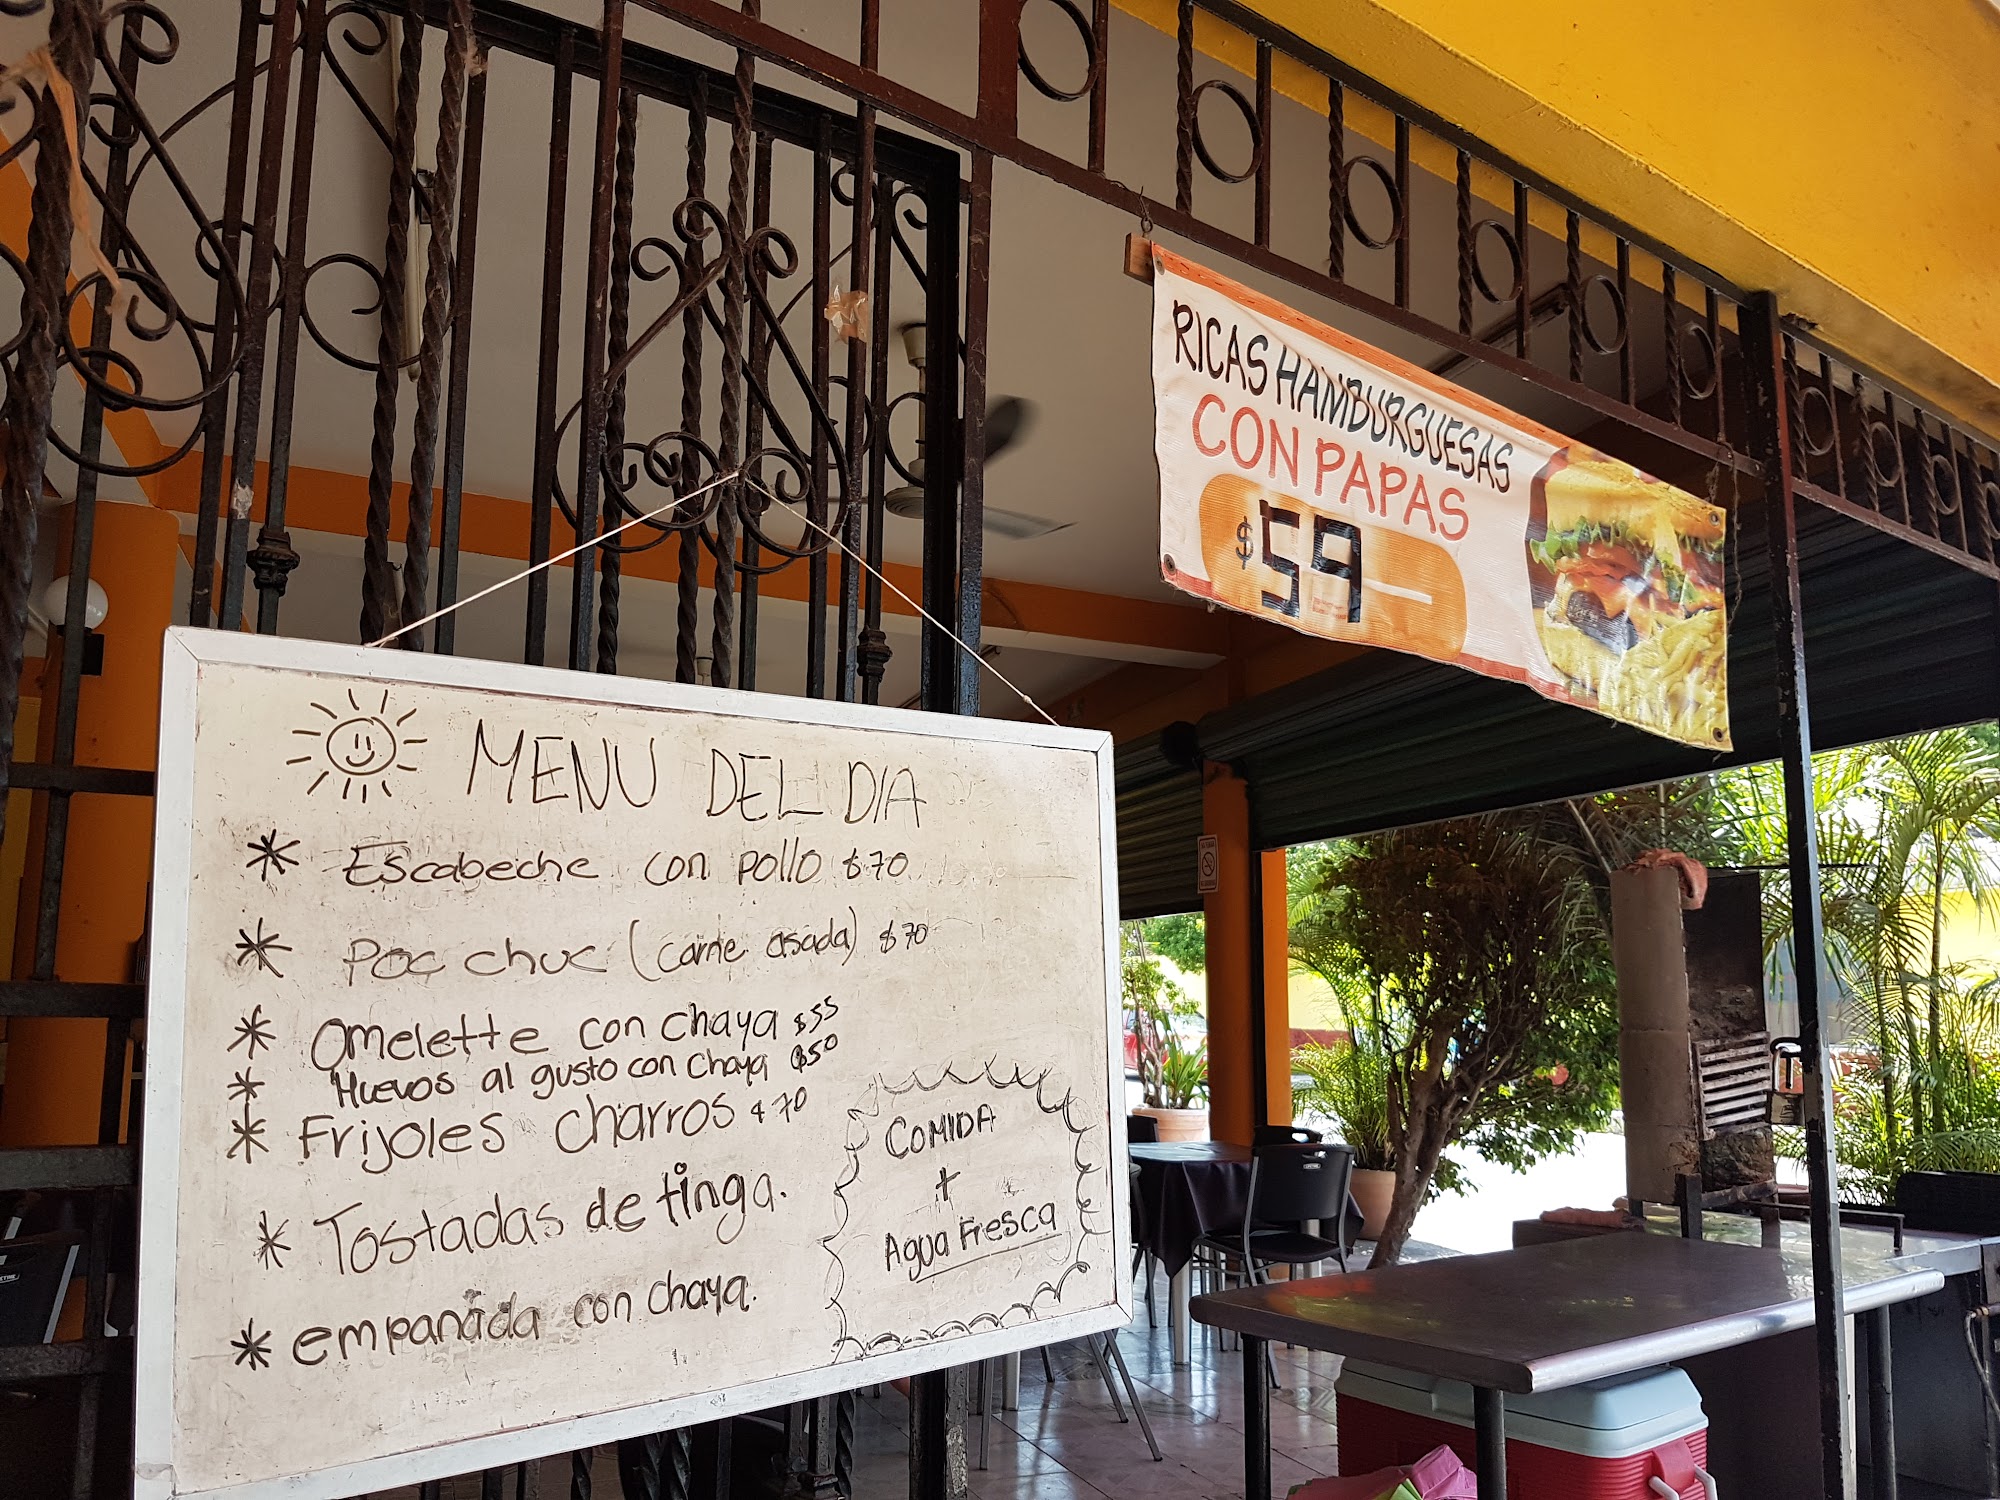 MENU DEL DIA
* Escabeche con pollo $70
* Poc chuc (carne asada) $70
* Omelette con chaya $55
* Huevos al gusto con chaya $50
* Frijoles charros $70
* Tostadas de tinga.
* empanada con chaya.
COMIDA
+
Agua Fresca
RICAS HAMBURGUESAS
CON PAPAS
$59